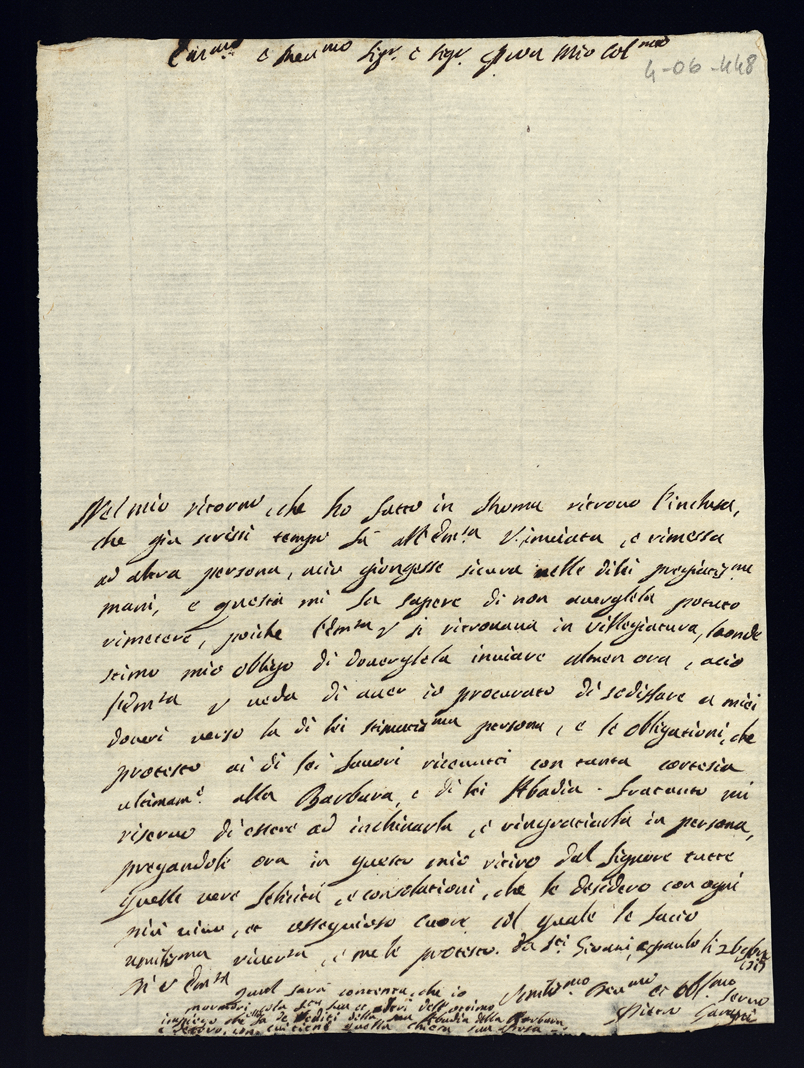 e Sig.r Mio Col.mo
4-06-448
Nel mio ritorno, che ho fatto in Rhoma ritrovo l'inclusa,
che già scrissi tempo fà all'Em.za V. inviata, e rimessa
ad altra persona, acio giongesse sicura nelle di lei pregiatis.me
mani, e questa mi fa sapere di non avergliela potuto
rimetere, poiche l'Em.za V si ritrovava in villegiatura, laonde
stimo mio obligo di dovergliela inviare almen ora, acio
l'Em.za V veda di aver io procurato di sodisfare a miei
doveri verso la di lei stimatis.ma persona, e le obligationi, che
protesto ai di lei favori ricevuti con tanta cortesia
ultimam.e alla Barbara, e di lei Abadia. Fratanto mi
riservo di essere ad inchinarla, e ringraciarla in persona,
pregandole ora in questo mio ritiro dal Signore tutte
quelle vere felicità, e consolationi, che le desidero con ogni
più vivo, et ossequioso cuore col quale le faccio
umilissima riverenza, e me le protesto. Da SS. Giovani, e Paulo li 26
Di V Em.za
Quel sarà contento, che io Umilis.mo et Obl.mo
Servo
della sua Abadia alla Barbara
quella chiesa sua